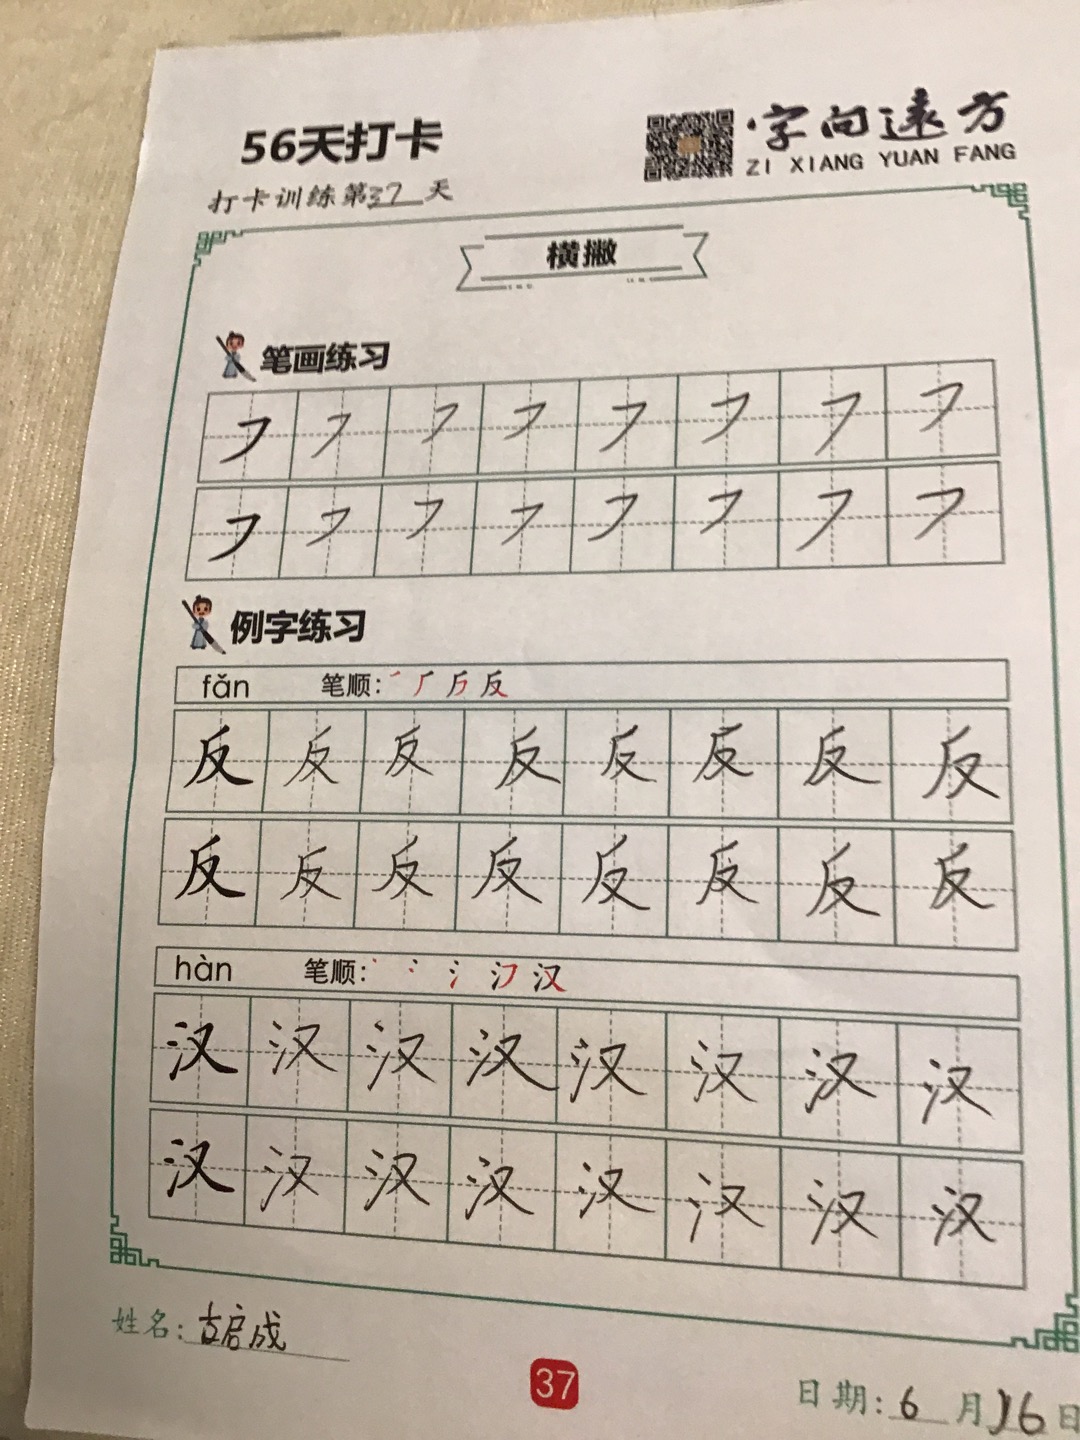 56天打卡
字向遠方
ZI XIANG YUAN FANG
打卡训练第37天
横撇
笔画练习
㇇ ㇇ ㇇ ㇇ ㇇ ㇇ ㇇ ㇇
㇇ ㇇ ㇇ ㇇ ㇇ ㇇ ㇇ ㇇
例字练习
fǎn 笔顺: 反
反 反 反 反 反 反 反 反
反 反 反 反 反 反 反 反
hàn 笔顺: 汉
汉 汉 汉 汉 汉 汉 汉 汉
汉 汉 汉 汉 汉 汉 汉 汉
姓名: 古启成
37
日期: 6月16日